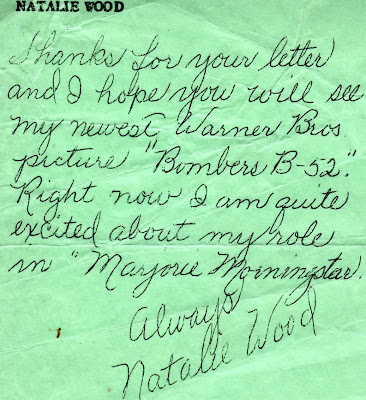 NATALIE WOOD
Thanks for your letter
and I hope you will see
my newest Warner Bros.
picture "Bombers B-52".
Right now I am quite
excited about my role
in "Marjorie Morningstar.
Always
Natalie Wood